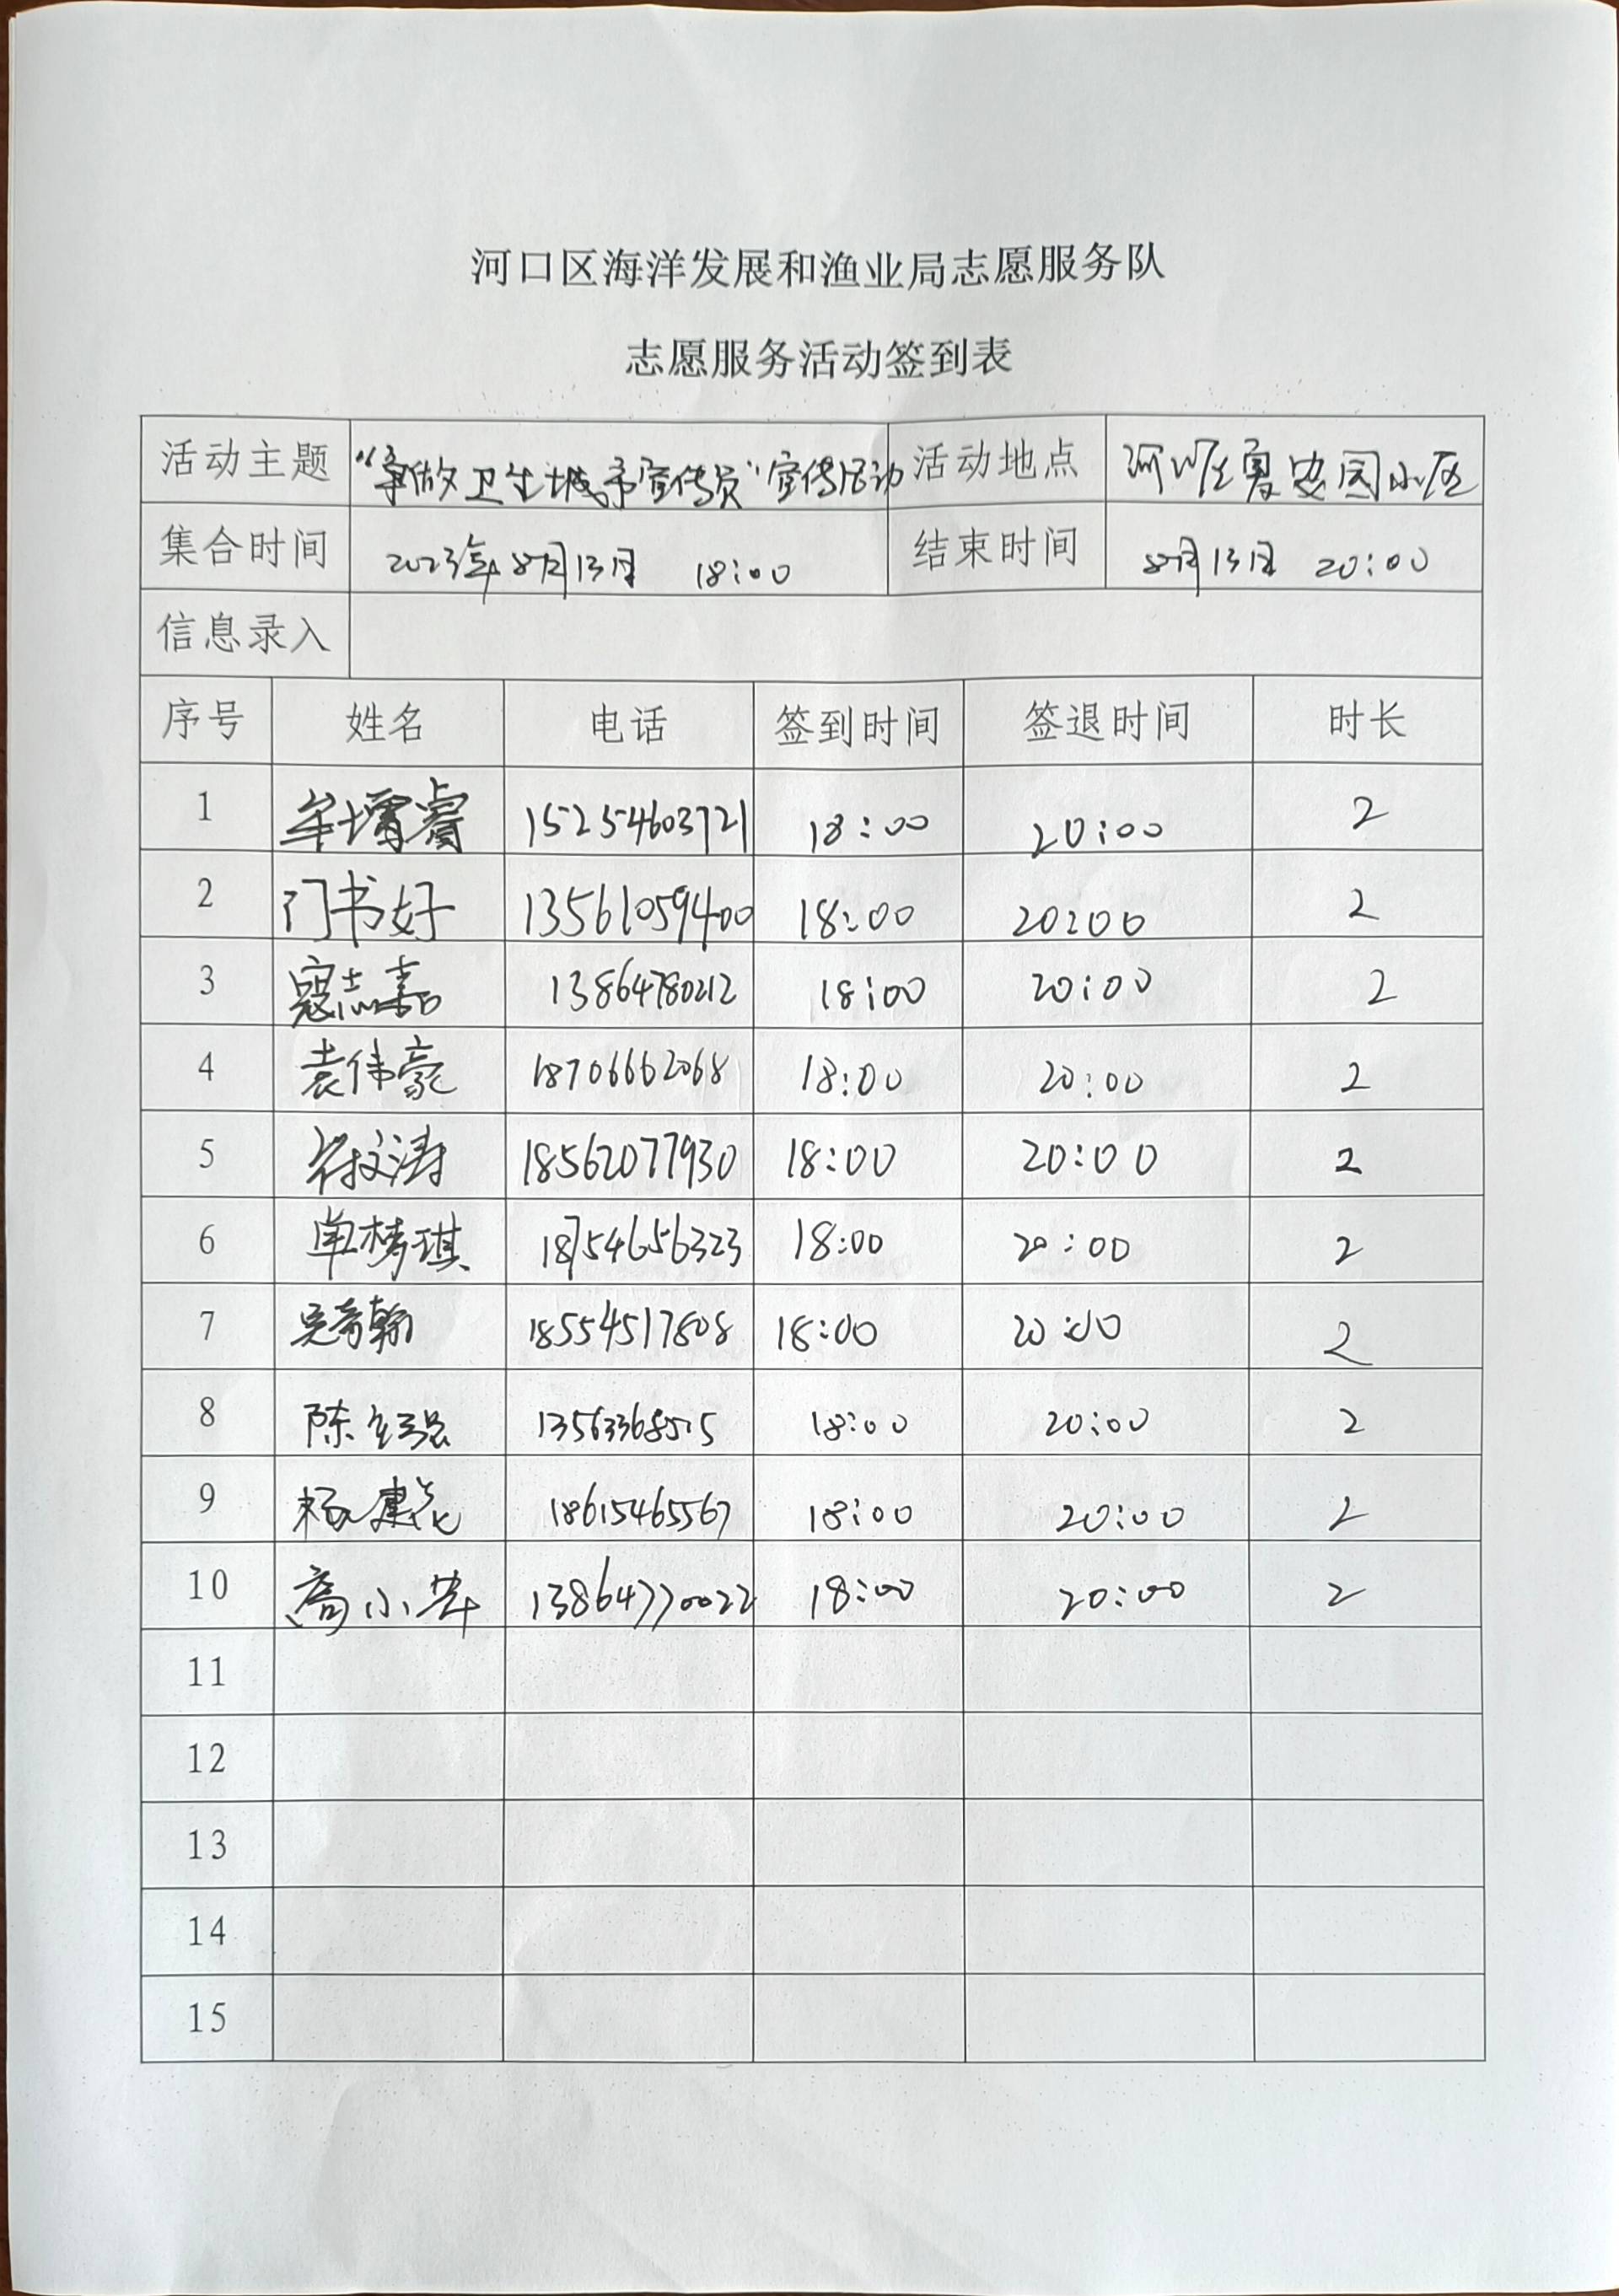 河口区海洋发展和渔业局志愿服务队
志愿服务活动签到表
活动主题 “争做卫生城市宣传员”宣传活动 活动地点 小区
集合时间 2023年8月13日 18:00 结束时间 8月13日 20:00
信息录入
序号 姓名 电话 签到时间 签退时间 时长
1 牟增睿 15254603721 18:00 20:00 2
2 门书好 13561059400 18:00 20:00 2
3 寇志嘉 13864780212 18:00 20:00 2
4 袁伟豪 18706662068 18:00 20:00 2
5 文涛 18562077930 18:00 20:00 2
6 单梦琪 18754656323 18:00 20:00 2
7 18554517808 18:00 20:00 2
8 陈 强 18:00 20:00 2
9 杨建 18615465567 18:00 20:00 2
10 高小 13864770022 18:00 20:00 2
11
12
13
14
15